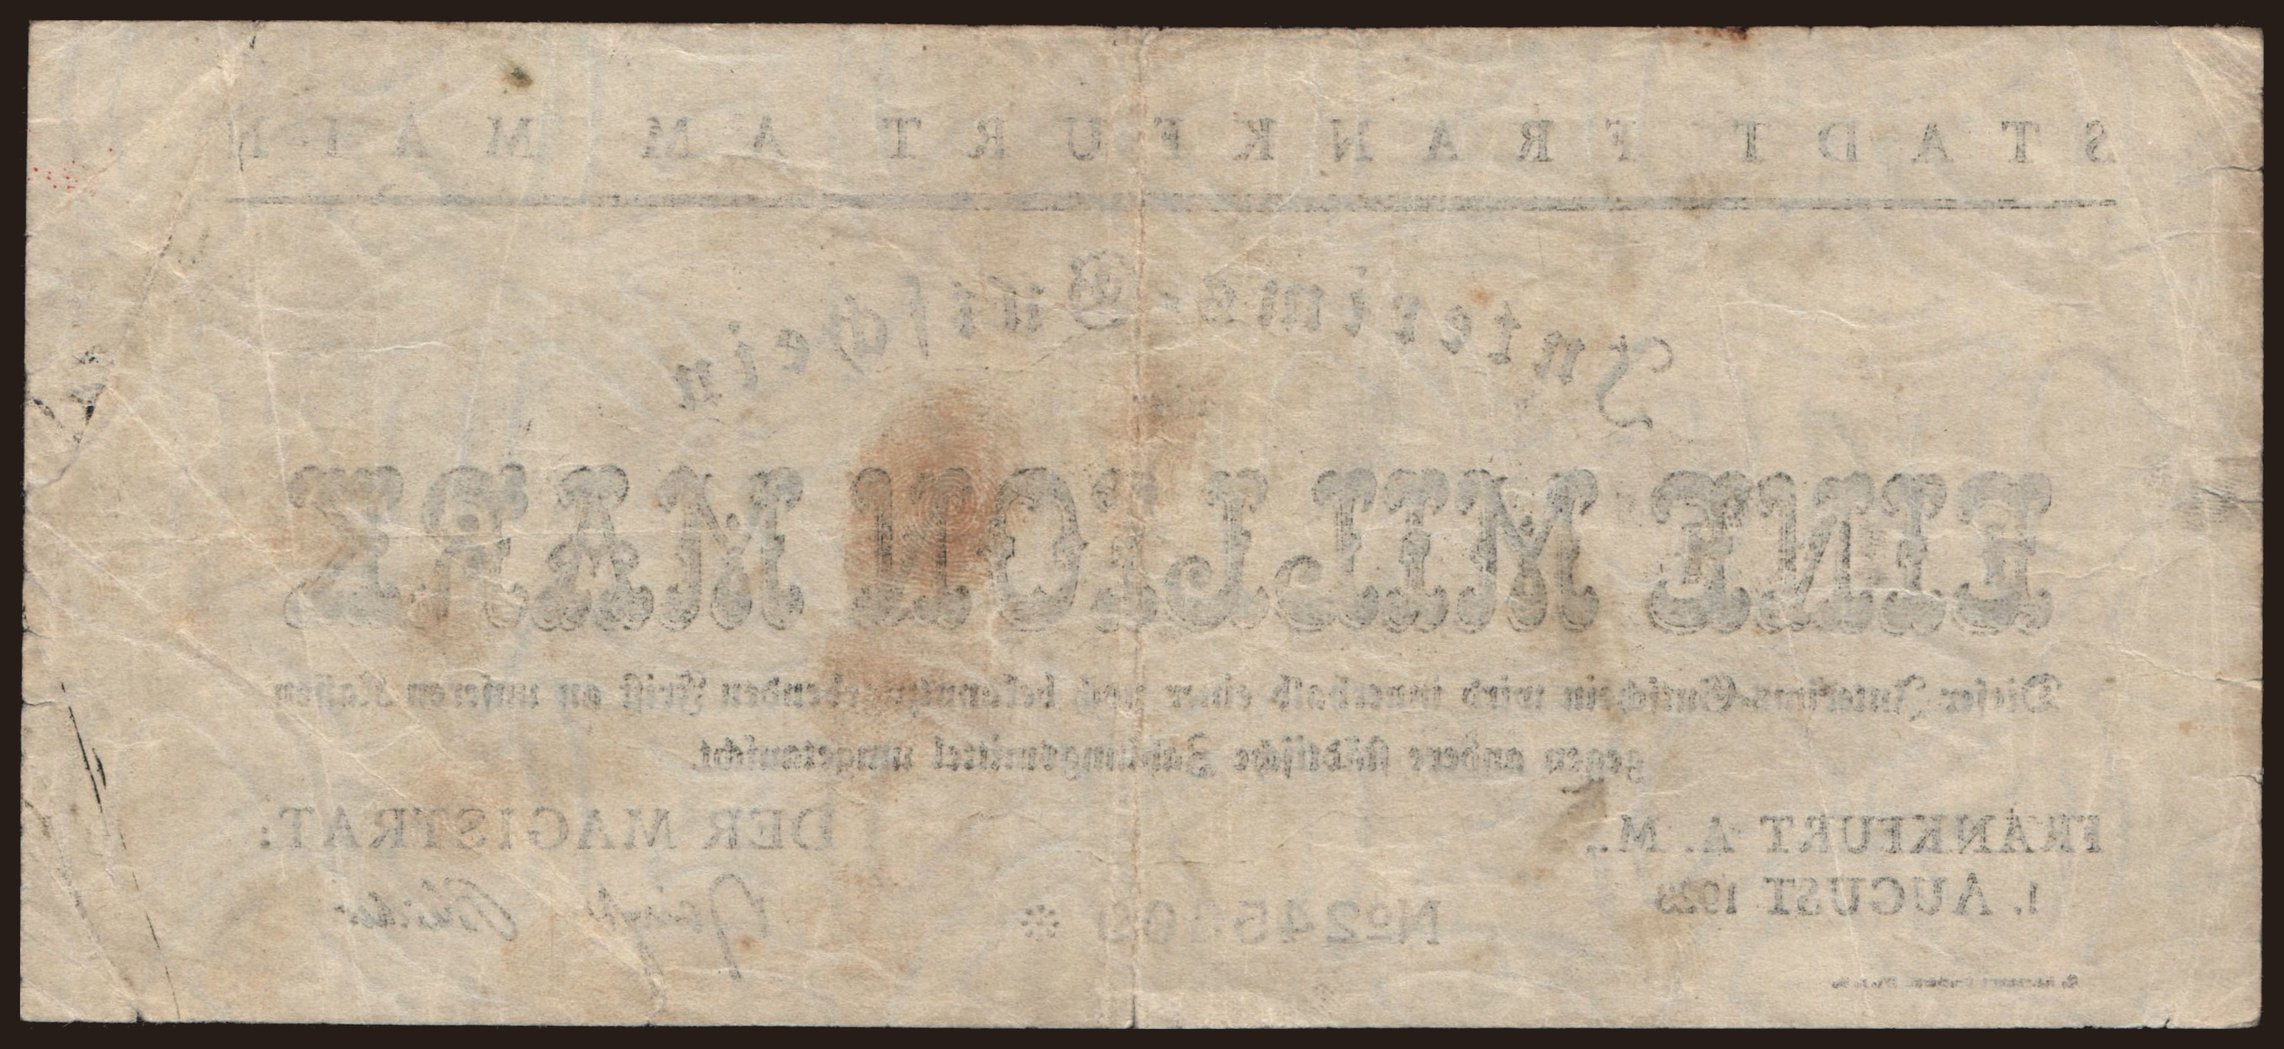 STADT FRANKFURT AM MAIN
Interims-Gutschein
über
EINE MILLION MARK
Dieser Interims-Gutschein wird innerhalb einer noch bekanntzugebenden Frist an unseren Kassen
gegen andere städtische Zahlungsmittel umgetauscht.
FRANKFURT A. M.,
1. AUGUST 1923
DER MAGISTRAT:
*